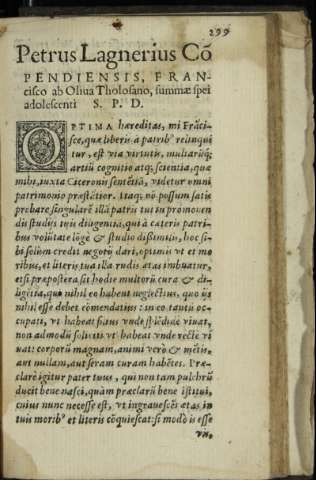 299
Petrus Lagnerius Cõ
PENDIENSIS, FRAN-
cisco ab Oliua Tholosano, summæ spei
adolescenti S. P. D.
OPTIMA hæreditas, mi Frãci-
sce, quæ liberis à patribꝰ relinqui
tur, est via virtutis, multarũq;
artiũ cognitio atq; scientia, quæ
mihi, iuxta Ciceronis sentẽtiã, videtur omni
patrimonio præstãtior. Itaq; nõ possum satis
probare singularẽ illã patris tui in promouen
dis studijs tuis diligentiã, qui à cæteris patri-
bus volũtate lõgè & studio dissimilis, hoc si-
bi solùm credit negotij dari, optimis vt et mo
ribus, et literis tua illa rudis ætas imbuatur,
etsi præpostera sit hodie multorũ cura & di-
ligẽtia, qui nihil eo habent neglectius, quo ijs
nihil esse debet cõmendatius: in eo tantũ oc-
cupati, vt habeat filius vnde splẽdidè viuat,
non admodũ soliciti vt habeat vnde rectè vi
uat: corporũ magnam, animi verò & mẽtis,
aut nullam, aut seram curam habẽtes. Præ-
clarè igitur pater tuus, qui non tam pulchrũ
ducit bene nasci, quàm præclarũ bene istitui,
cuius nunc necesse est, vt ingrauescẽs ætas in
tuis moribꝰ et literis cõquiescat: si modò is esse